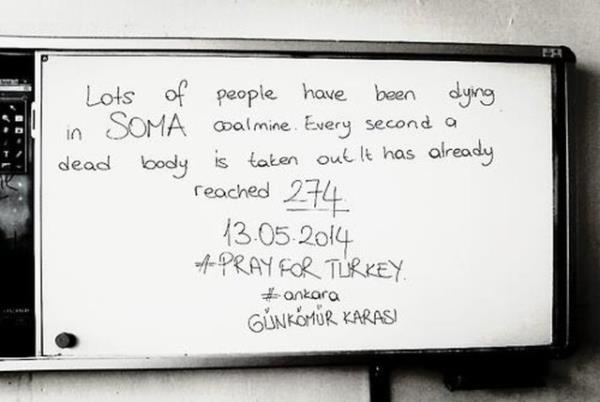 Lots of people have been dying
in SOMA coalmine. Every second a
dead body is taken out. It has already
reached 274
13.05.2014
#PRAY FOR TURKEY.
#ankara
GÜNKÖMÜR KARASI